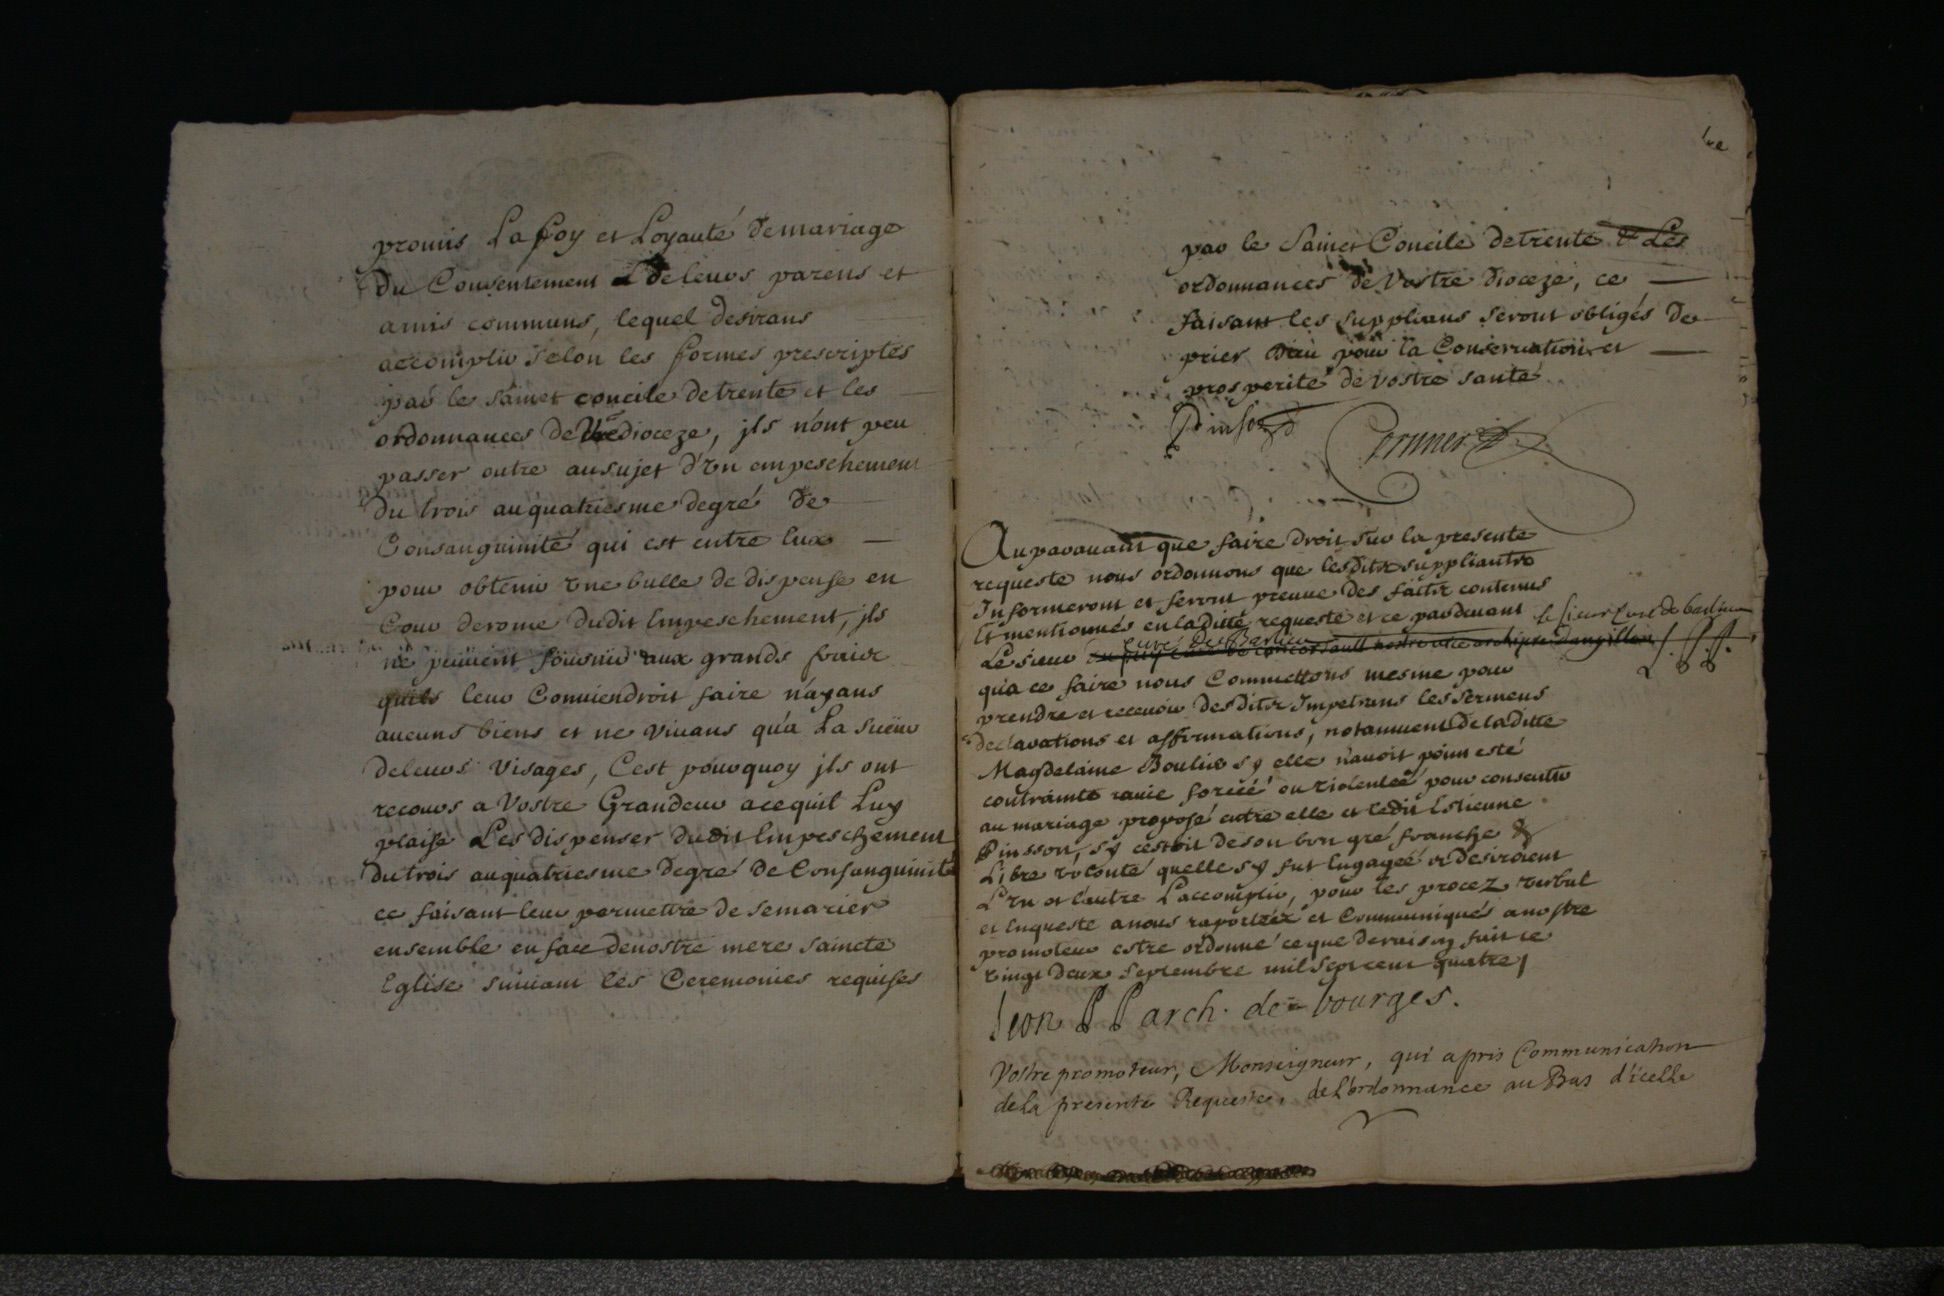 promis La foy et Loyauté de mariage
du Consentement de leurs parens et
amis communs, lequel desirans
accomplir selon les formes prescriptes
par le sainct concile de trente et les
ordonnances de Vre dioceze, jls n'ont peu
passer outre au sujet d'vn empeschement
du trois au quatriesme degré de
Consanguinité qui est entre Eux
pour obtenir vne bulle de dispense en
Cour de rome dudit Empeschement, jls
ne peuuent fournir aux grands fraix
quils leur Conuiendroit faire n'ayans
aucuns biens et ne viuans qu'a La sueur
de leurs visages, C'est pourquoy jls ont
recours a Vostre Grandeur a ce quil Luy
plaise Les dispenser dudit Empeschement
du trois au quatriesme degré de Consanguinité
ce faisant leur permettre de se marier
ensemble en face de nostre mere saincte
Eglise suiuant les Ceremonies requises
par le Sainct Concile de trente & Les
ordonnances de Vostre Dioceze, ce
faisant les supplians seront obligés de
prier Dieu pour la Conseruation et
prosperité de vostre santé
Pinson
Auparauant que faire droit sur la presente
requeste nous ordonnons que lesdits suppliants
Informeront et feront preuue des faits contenus
Et mentionnés en ladite requeste et ce pardeuant le sieur Curé de Barlieu
Le sieur Curé de Barlieu
qu'a ce faire nous Commettons mesme pour
prendre et receuoir desdits Impetrans les sermens
declarations et affirmations, notamment de laditte
Magdelaine Boulier sy elle n'auoit point esté
contrainte rauie forcéé ou violentéé pour consentir
au mariage proposé entre elle et ledit Estienne
Pinsson, sy c'estoit de son bon gré franche &
Libre volonté quelle s'y fut Engagéé et desiroient
L'vn et l'autre L'accomplir, pour les procez verbal
et Enqueste a nous raportéz et Communiqués a nostre
promoteur estre ordonné ce que de raison fait ce
vingt deux septembre mil sept cent quatre
Leon P P arch. de bourges.
Vostre promoteur, Monseigneur, qui a pris Communication
de la presente Requeste, de L'ordonnance au Bas d'icelle